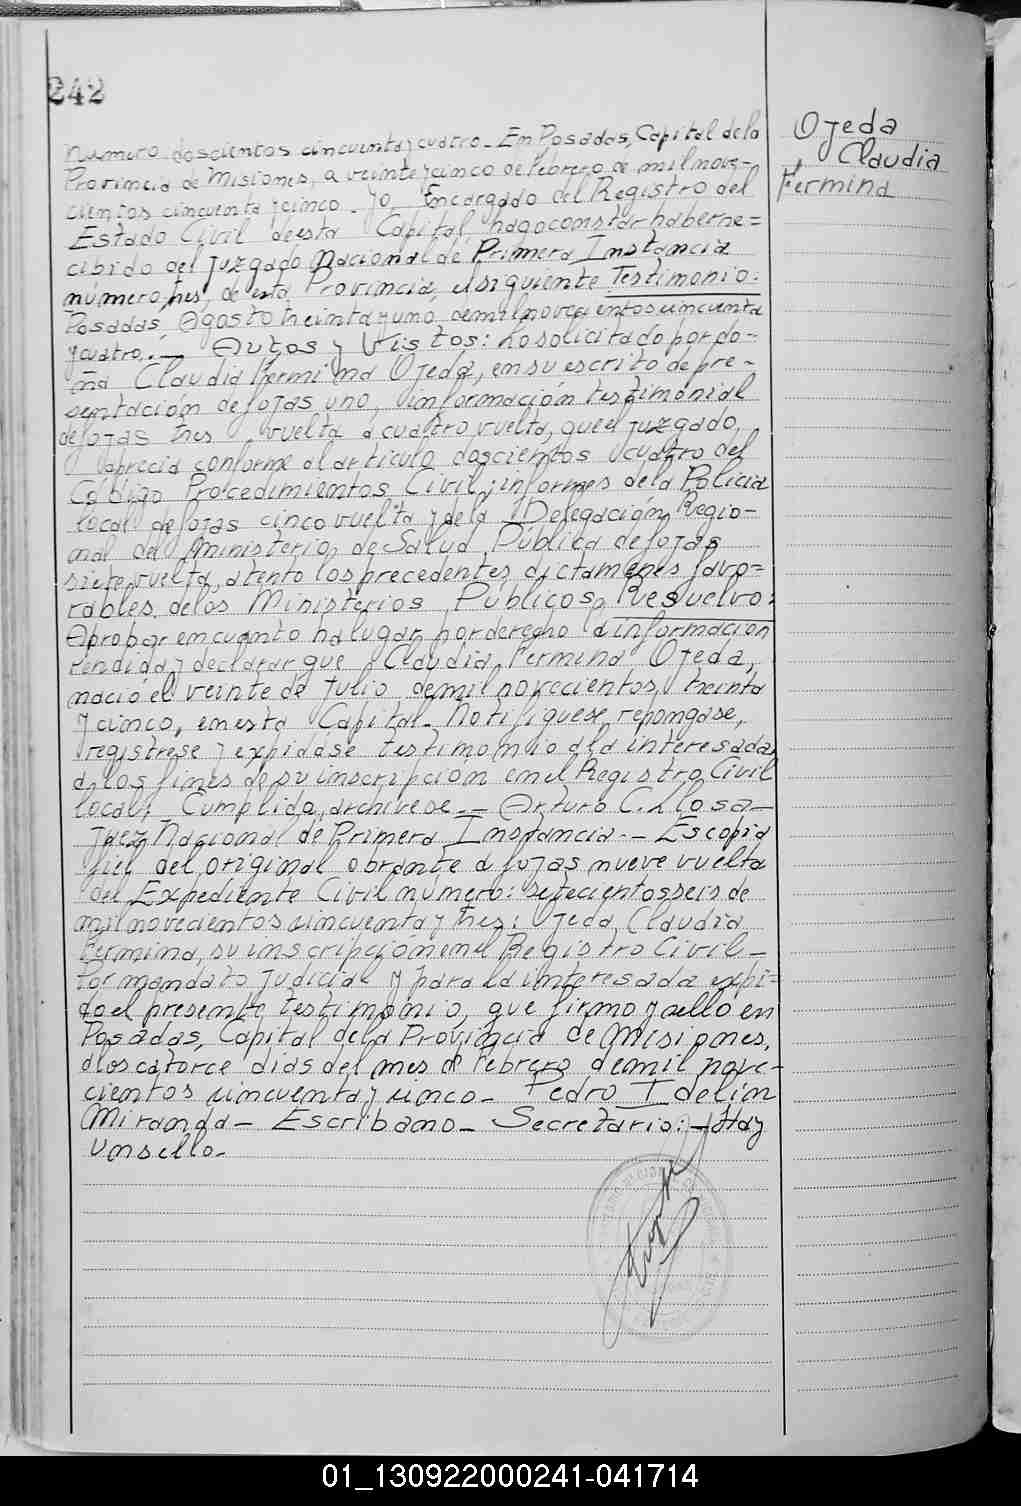 242
Ojeda
Claudia
Fermina
Numero doscientos cincuenta y cuatro. En Posadas, Capital de la
Provincia de Misiones, a veinte y cinco de Febrero de mil nove-
cientos cincuenta y cinco. Yo, Encargado del Registro del
Estado Civil de esta Capital, hago constar haber re=
cibido del Juzgado Nacional de Primera Instancia
número tres, de esta Provincia, el siguiente Testimonio:
Posadas, Agosto treinta y uno de mil novecientos cincuenta
y cuatro.- Autos y Vistos: Lo solicitado por do-
ña Claudia Fermina Ojeda, en su escrito de pre-
sentación de fojas uno, información testimonial
de fojas tres vuelta a cuatro vuelta, que el juzgado,
aprecia conforme al artículo doscientos cuatro del
Código Procedimientos Civil, informes de la Policia
local de fojas cinco vuelta y de la Delegación Regio-
nal del Ministerio de Salud Pública de fojas
siete vuelta, atento los precedentes dictamenes favo=
rables de los Ministerios Públicos, Resuelvo:
Aprobar en cuanto ha lugar por derecho la información
rendida y declarar que Claudia Fermina Ojeda,
nació el veinte de Julio de mil novecientos treinta
y cinco, en esta Capital. Notifiquese, repongase,
registrese y expidase testimonio a la interesada
a los fines de su inscripción en el Registro Civil
local. Cumplido, archivese.- Arturo C. Llosa-
Juez Nacional de Primera Instancia.- Es copia
fiel del original obrante a fojas nueve vuelta
del Expediente Civil número: setecientos seis de
mil novecientos cincuenta y tres: Ojeda, Claudia
Fermina, su inscripción en el Registro Civil-
Por mandato judicial y para la interesada expi-
do el presente testimonio, que firmo y sello en
Posadas, Capital de la Provincia de Misiones,
a los catorce dias del mes de Febrero de mil nove-
cientos cincuenta y cinco. Pedro Idelin
Miranda- Escribano- Secretario:- Hay
un sello.
01_130922000241-041714